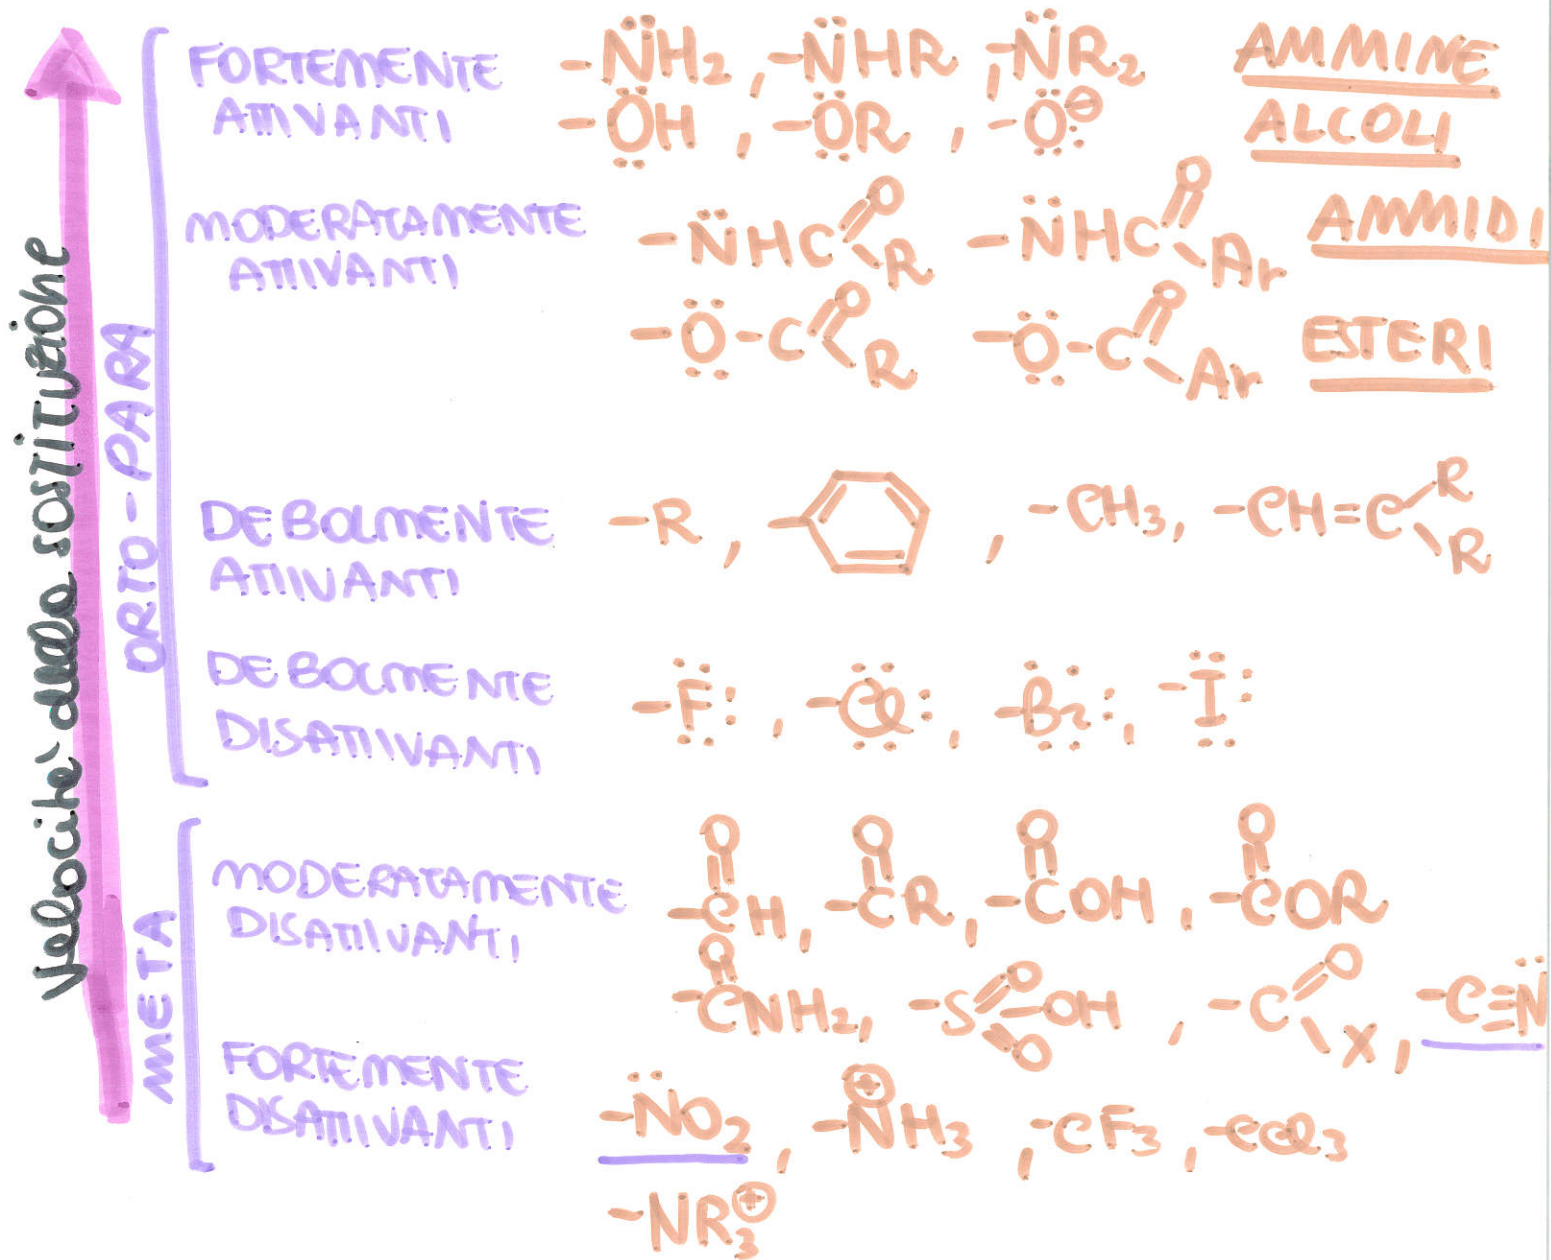 Velocità della sostituzione
ORTO-PARA
FORTEMENTE ATTIVANTI
-N̈H₂, -N̈HR, -N̈R₂ AMMINE
-ÖH, -ÖR, -Ö⊖ ALCOLI
MODERATAMENTE ATTIVANTI
-N̈HC=O R -N̈HC=O Ar AMMIDI
-Ö-C=O R -Ö-C=O Ar ESTERI
DEBOLMENTE ATTIVANTI
-R, , -CH₃, -CH=C R R
DEBOLMENTE DISATTIVANTI
-F, -Cl, -Br, -I
META
MODERATAMENTE DISATTIVANTI
O O O O
-CH, -CR, -COH, -COR
O
-CNH₂, -S=O OH =O, -C=O X, -C≡N̈
FORTEMENTE DISATTIVANTI
-N̈O₂, -N⊕H₃, -CF₃, -CCl₃
-NR₃⊕